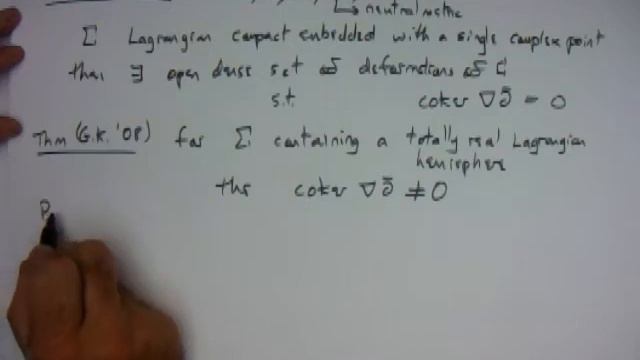 ↳ neutral metric
Σ Lagrangian compact embedded with a single complex point
then ∃ open dense set of deformations of
s.t. coker ∇∂̄ = 0
Thm (G.K. '08) for Σ containing a totally real Lagrangian
hemisphere
the coker ∇∂̄ ≠ 0
P